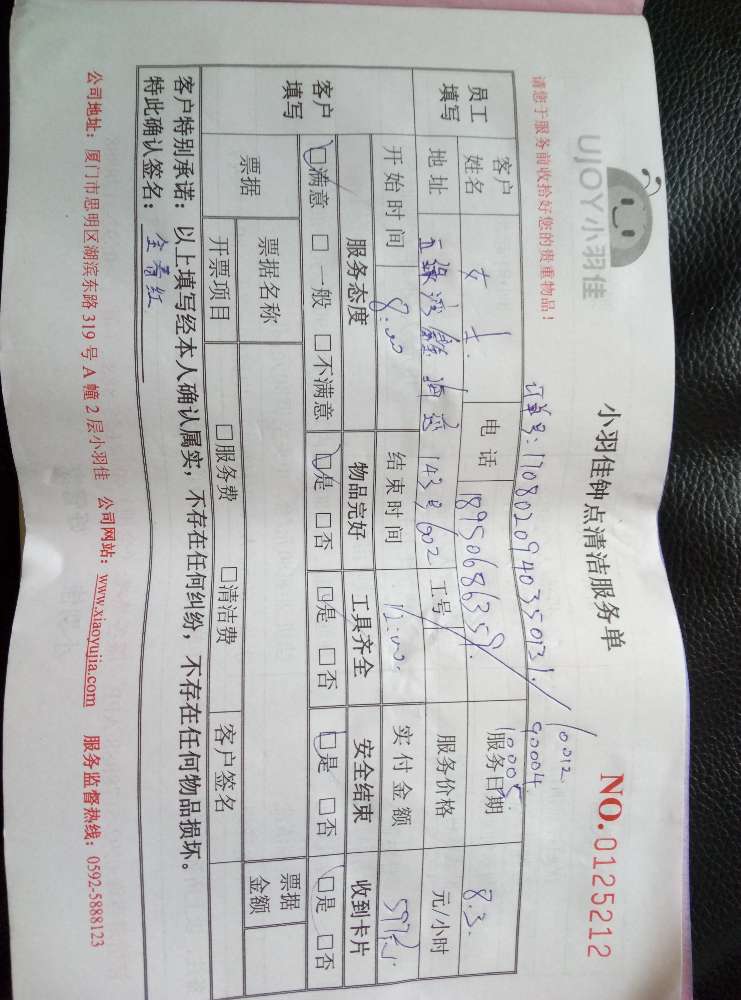 UJOY小羽佳
小羽佳钟点清洁服务单
NO.0125212
请您于服务前收拾好您的贵重物品!
订单号:17080209403350131.
10.012
9.0004
10.005
员工填写
客户姓名 女士 电话 18950686359. 服务日期 8.3.
地址 五缘湾 143号602 工号 服务价格 元/小时
开始时间 8:00 结束时间 12:00 实付金额 597元
客户填写
服务态度 物品完好 工具齐全 安全结束 收到卡片
☑满意 □一般 □不满意 ☑是 □否 ☑是 □否 ☑是 □否 ☑是 □否
票据 票据名称 □服务费 □清洁费 票据金额
开票项目 客户签名
客户特别承诺:以上填写经本人确认属实,不存在任何纠纷,不存在任何物品损坏。
特此确认签名:金春红
公司地址:厦门市思明区湖滨东路319号A幢2层小羽佳 公司网站:www.xiaoyujia.com 服务监督热线:0592-5888123